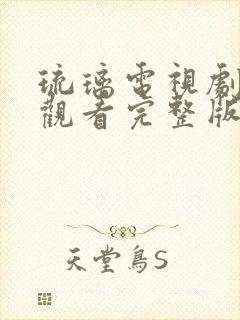 琉璃電視劇
觀看完整版
天堂鳥S